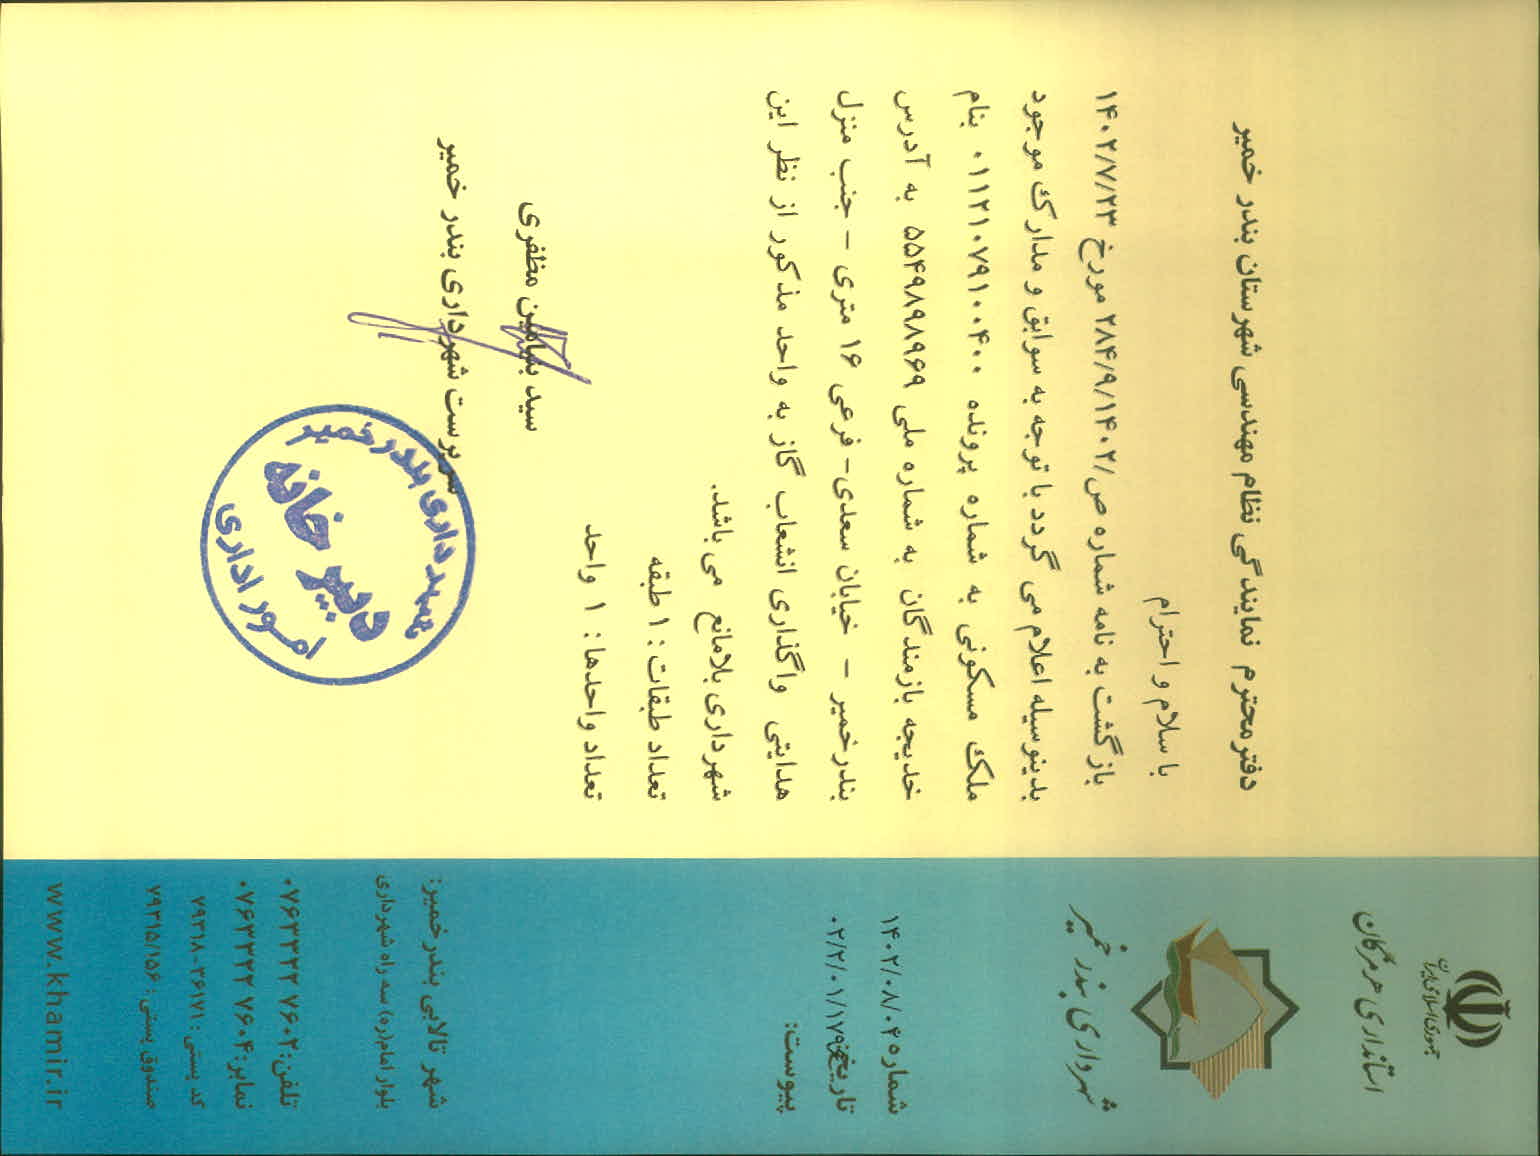 جمهوری اسلامی ایران
استانداری هرمزگان
شهرداری بندر خمیر
شماره
۱۴۰۲/۰۸/۰۲
تاریخ
۰۲/۲/۰۱/۱۷۹
پیوست:
دفتر محترم نمایندگی نظام مهندسی شهرستان بندر خمیر
با سلام و احترام
بازگشت به نامه شماره ص/۲۸۴/۹/۱۴۰۲ مورخ ۱۴۰۲/۷/۲۳
بدینوسیله اعلام می گردد با توجه به سوابق و مدارک موجود
ملک مسکونی به شماره پرونده ۰۱۱۲۱۰۷۹۱۰۰۴۰۰ بنام
خدیجه بازمندگان به شماره ملی ۵۵۴۹۸۹۸۹۶۹ به آدرس
بندرخمیر – خیابان سعدی- فرعی ۱۶ متری – جنب منزل
هدایتی واگذاری انشعاب گاز به واحد مذکور از نظر این
شهرداری بلامانع می باشد.
تعداد طبقات: ۱ طبقه
تعداد واحدها: ۱ واحد
سید بنیامین مظفری
سرپرست شهرداری بندر خمیر
شهرداری بندر خمیر
دبیر خانه
امور اداری
شهر تالابی بندر خمیر:
بلوار امام(ره) سه راه شهرداری
تلفن: ۰۷۶۳۳۲۳ ۷۶۰۲
نمابر: ۰۷۶۳۳۲۳ ۷۶۰۴
کد پستی: ۷۹۳۱۸-۳۶۱۷۱
صندوق پستی: ۷۹۳۱۵/۱۵۶
www.khamir.ir